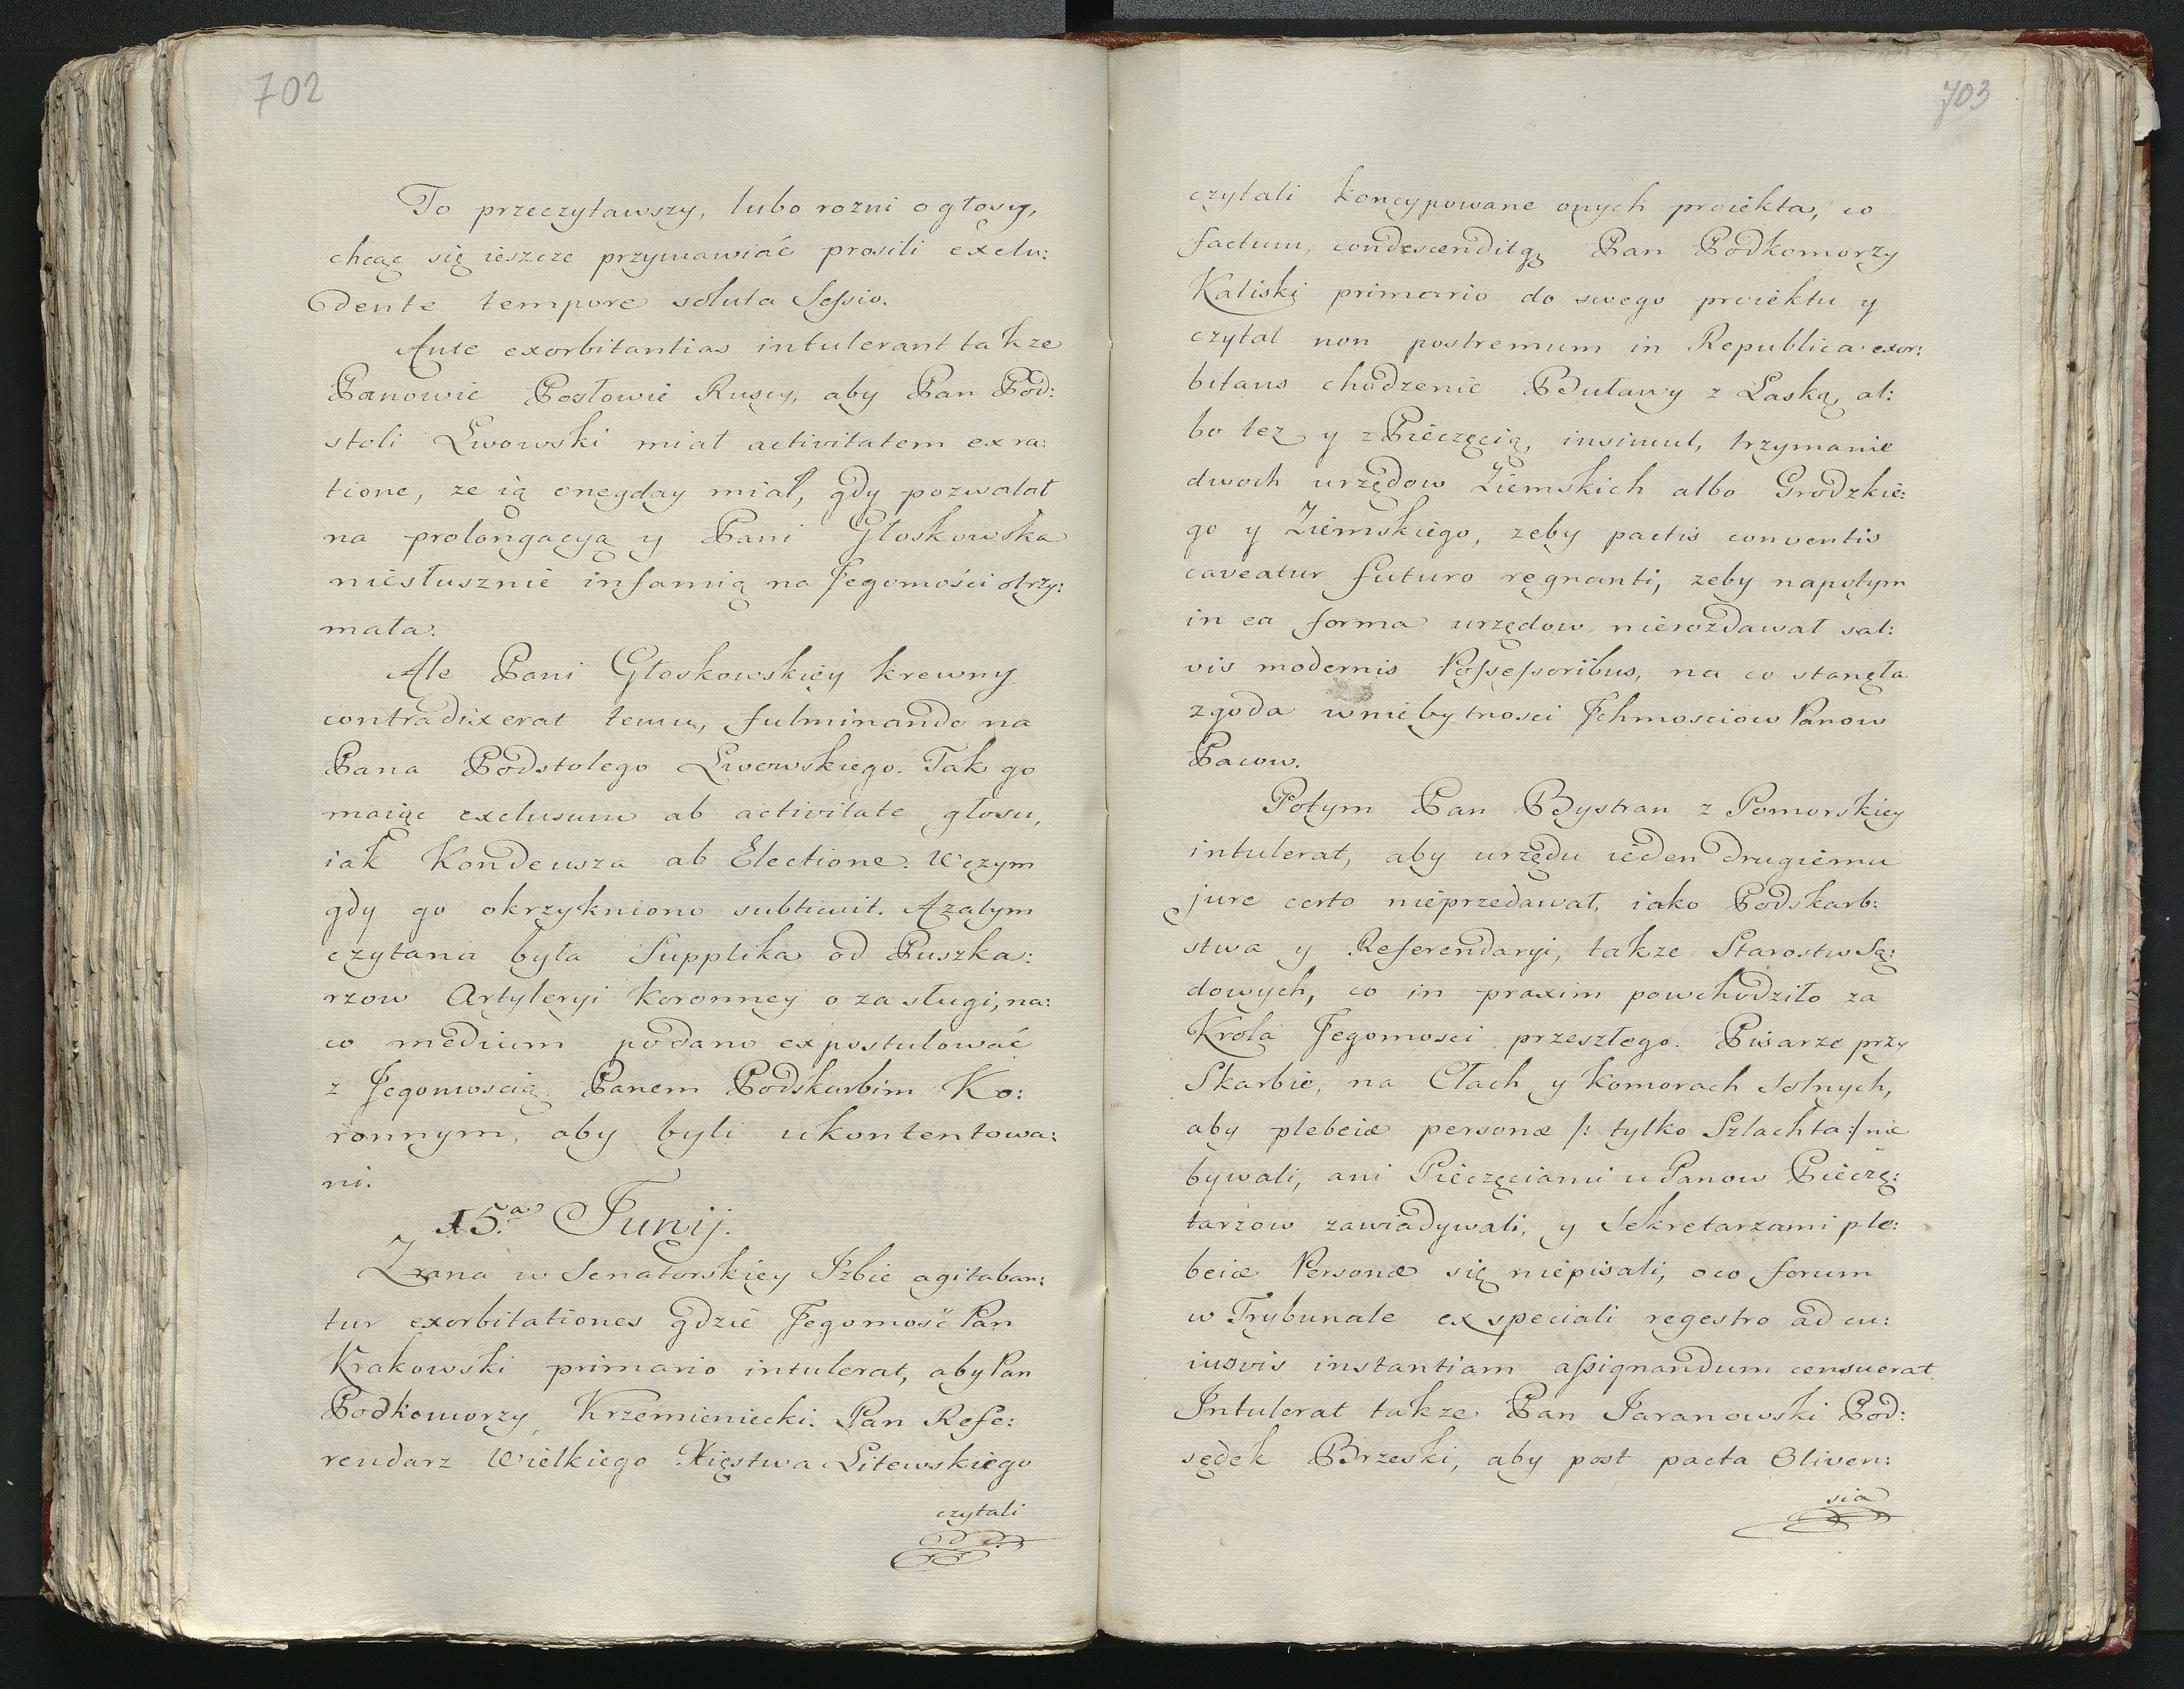 702
To przeczytawszy, lubo rozni o głosy,
chcąc się ieszcze przymawiać prosili exclu:
dente tempore soluta Sessio.
Ante exorbitantias intulerant takze
Panowie Posłowie Ruscy, aby Pan Pod:
stoli Lwowski miał activitatem ex ra:
tione, ze ią onegday miał, gdy pozwalał
na prolongacyą y Pani Głoskowska
niesłusznie infamią na Jegomości otrzy:
mała.
Ale Pani Głoskowskiey krewny
contradixerat temu, fulminando na
Pana Podstolego Lwowskiego. Tak go
maiąc exclusum ab activitate głosu,
iak Kondeusza ab Electione. W czym
gdy go okrzykniono subticuit. A zatym
czytana była Supplika od Puszka:
rzow Artyleryi Koronney o zasługi, na:
co medium podano expostulować
z Jegomoscią Panem Podskarbim Ko:
ronnym, aby byli ukontentowa:
ni.
15.a Junij.
Zrana w Senatorskiey Izbie agitaban:
tur exorbitationes gdzie Jegomość Pan
Krakowski primario intulerat, aby Pan
Podkomorzy Krzemieniecki. Pan Refe:
rendarz Wielkiego Xięstwa Litewskiego
czytali
703
czytali koncypowane onych proiekta, co
factum, condescenditq Pan Podkomorzy
Kaliski primario do swego proiektu y
czytal non postremum in Republica exor:
bitans chodzenie Buławy z Laską, al:
bo tez y z Pieczęcią, insimul, trzymanie
dwoch urzędow Ziemskich albo Grodzkie:
go y Ziemskiego, zeby pactis conventis
caveatur futuro regnanti, zeby napotym
in ea forma urzędow nierozdawał sal:
vis modernis Possessoribus, na co stanęła
zgoda w niebytnosci Jchmosciow Panow
Pacow.
Potym Pan Bystran z Pomorskiey
intulerat, aby urzędu ieden drugiemu
jure certo nieprzedawał, iako Podskarb:
stwa y Referendaryi, takze Starostw Są:
dowych, co in praxim powchodziło za
Krola Jegomosci przeszłego. Pisarze przy
Skarbie, na Cłach y Komorach Solnych,
aby plebeiæ personæ /: tylko Szlachta :/ nie
bywali, ani Pieczęciami u Panow Pieczę:
tarzow zawiadywali, y Sekretarzami ple:
beiæ Personæ się niepisali, o co forum
w Trybunale ex speciali regestro ad cu:
iusvis instantiam assignandum censuerat.
Intulerat takze Pan Jaranowski Pod:
sędek Brzeski, aby post pacta Oliven:
sia